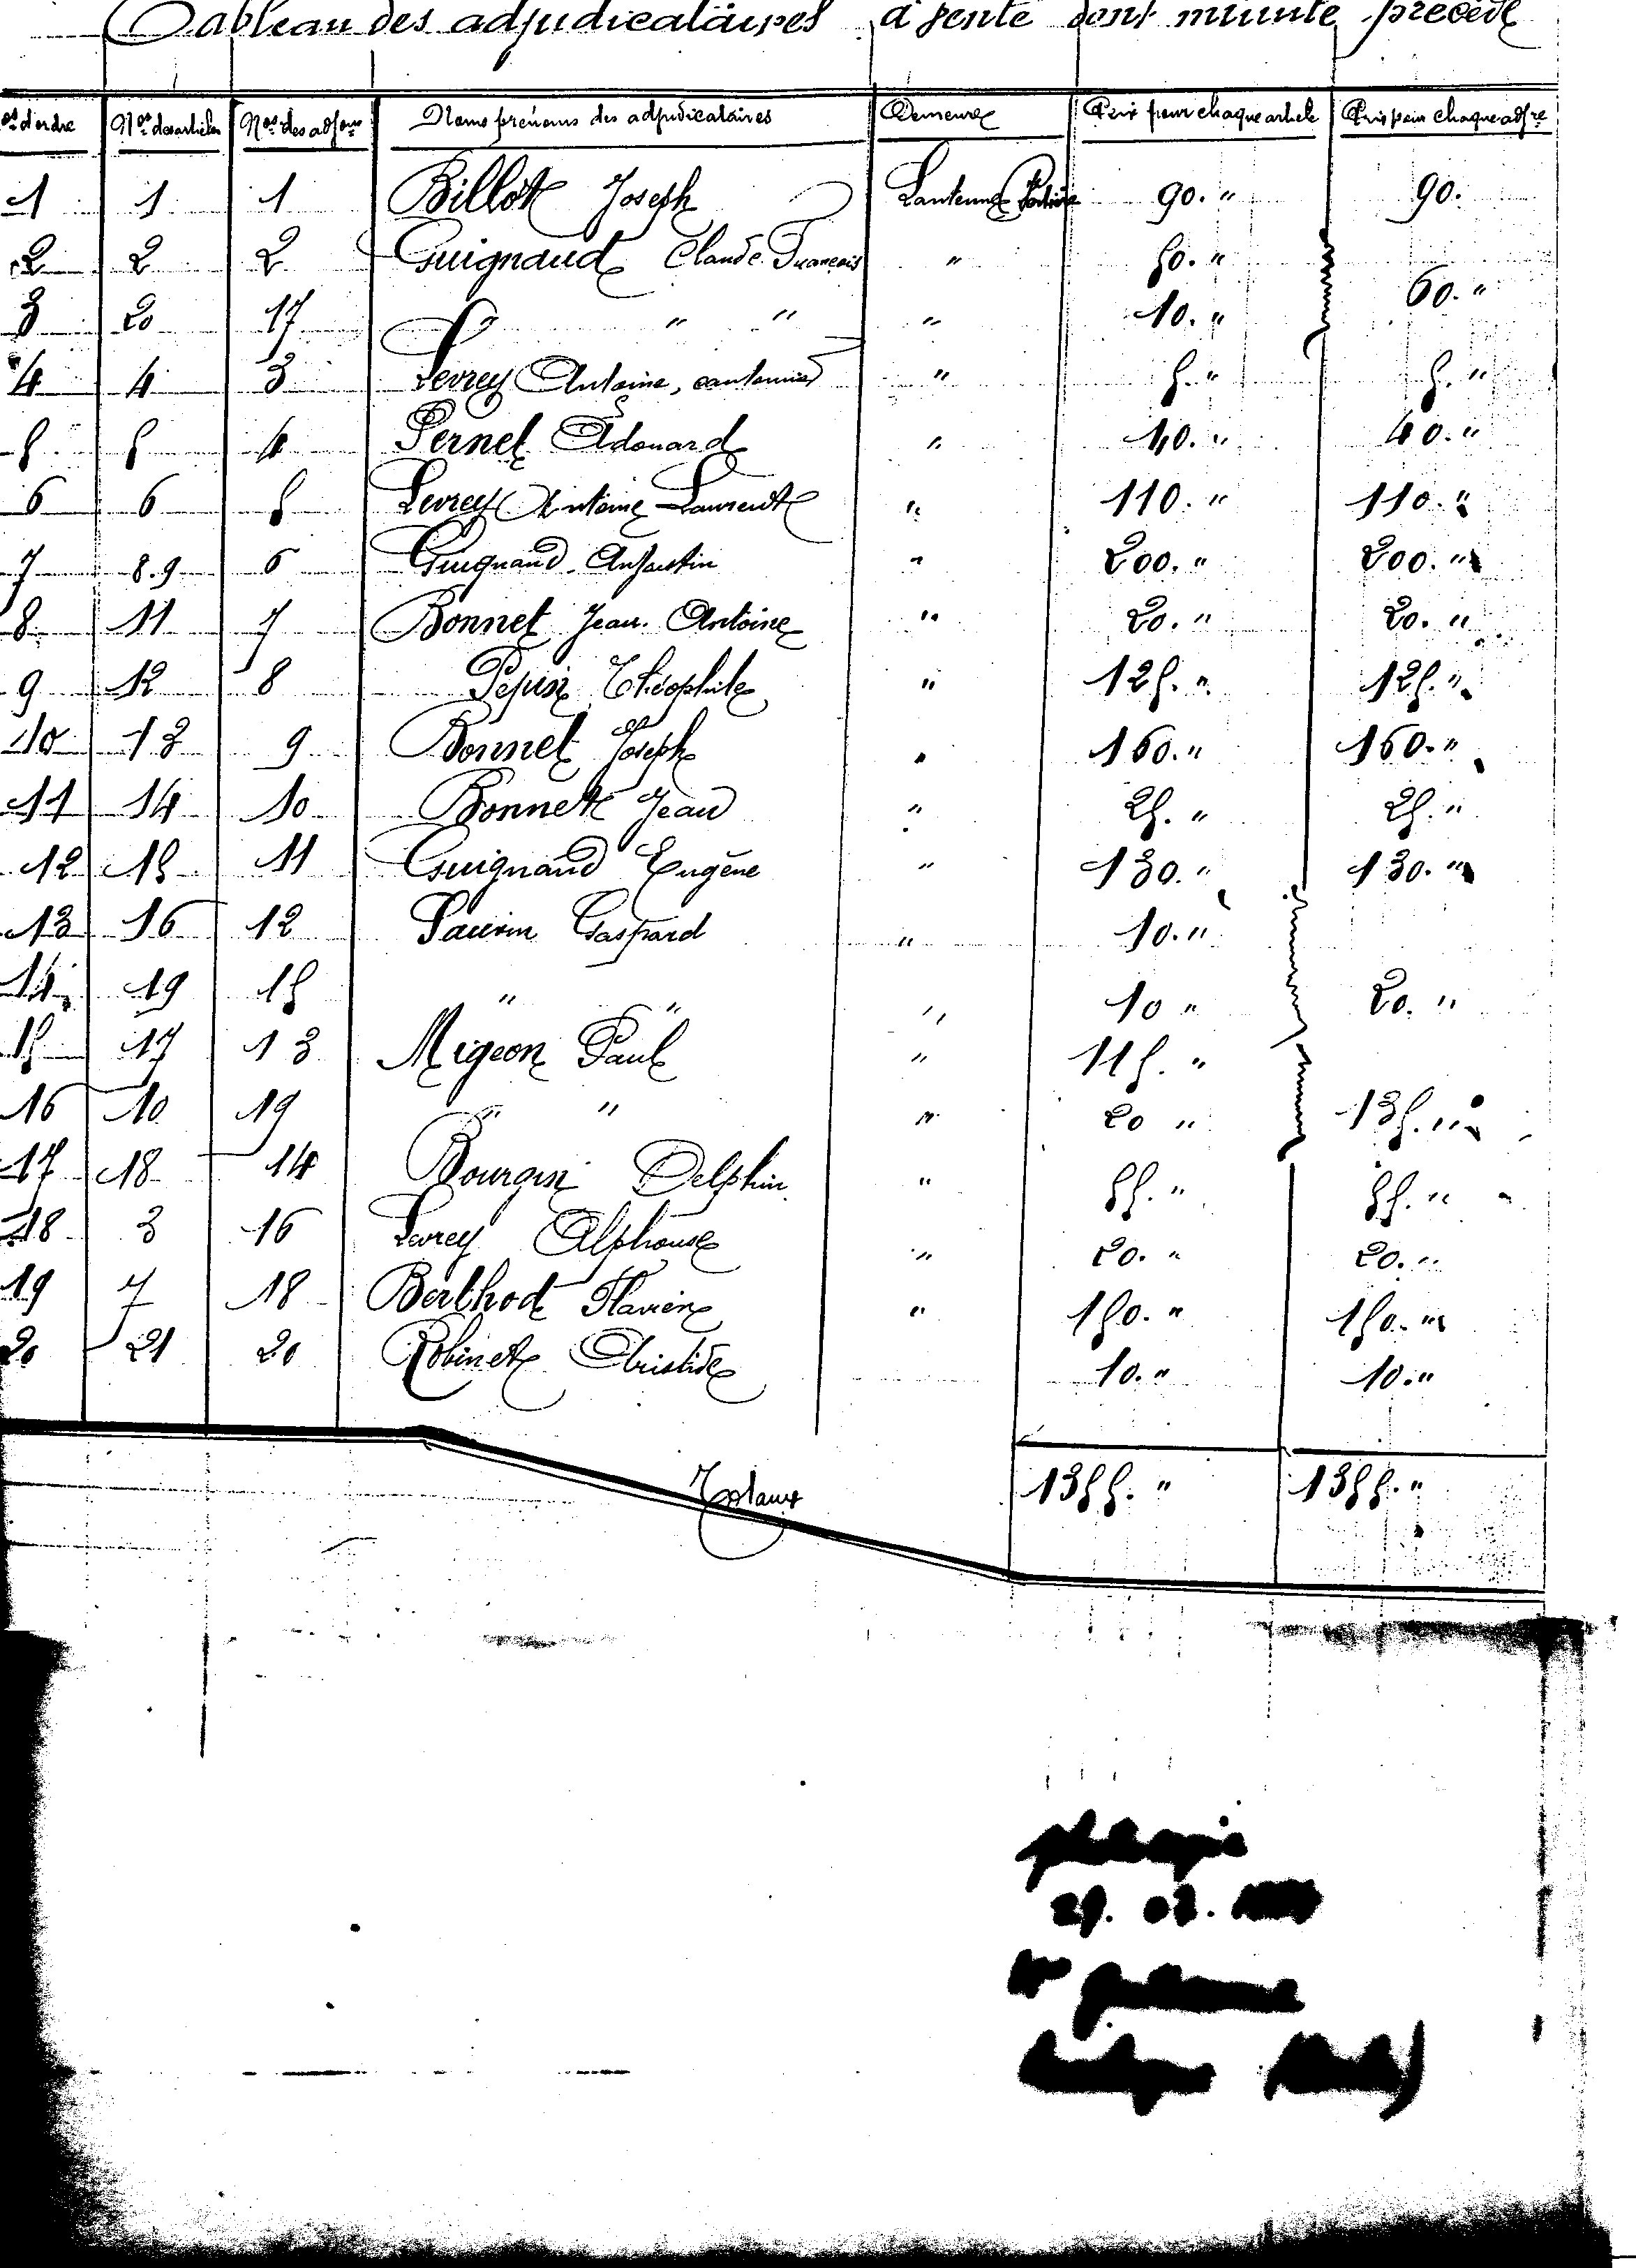 Tableau des adjudicataires à vente dont minute précède
Nos d'ordre Nos des articles Nos des adjons Noms prénoms des adjudicataires Demeure Prix pour chaque article Prix pour chaque adjre
1 1 1 Billot Joseph Lantenne 90. " 90.
2 2 2 Guignaud Claude François " 50. "
3 20 17 " " " 10. " 60. "
4 4 3 Levrey Antoine, cantonnier " 5. " 5. "
5 5 4 Pernet Edouard " 40. " 40. "
6 6 5 Levrey Antoine Laurent " 110. " 110. "
7 8.9 6 Guignaud " 200. " 200. "
8 11 7 Bonnet Jean Antoine " 20. " 20. "
9 12 8 Pepin Théophile " 125. " 125. "
10 13 9 Bonnet Joseph " 160. " 160. "
11 14 10 Bonnet Jean " 25. " 25. "
12 15 11 Guignaud Eugène " 130. " 130. "
13 16 12 Gaspard " 10. "
14 19 15 " " " 10 " 20. "
15 17 13 Migeon Paul " 115. "
16 10 19 " " " 20 " 135. "
17 18 14 Bourgin Delphin " 55. " 55. "
18 3 16 Levrey Alphonse " 20. " 20. "
19 7 18 Berthod Flavien " 150. " 150. "
20 21 20 Robinet Aristide 10. " 10. "
Totaux 1355. " 1355. "